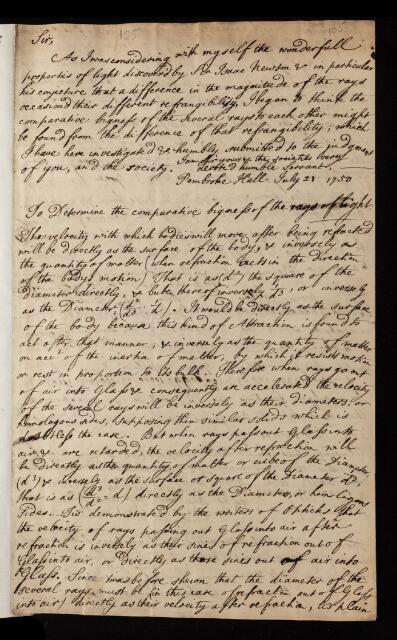 105
Sir,
As I was considering with myself the wonderfull
properties of light discovered by Sr. Isaac Newton & in particular
his conjecture that a difference in the magnitude of the rays
occasiond their different refrangibility, I began to think the
comparative bigness of the several rays to each other might
be found from the difference of that refrangibility; which
I have here investigated & humbly submitted to the judgment
of you, and the society. I am Sir yours & the society's very
humble Servant
Pembroke Hall July 21 1750
To Determine the comparative bigness of the rays of light
The velocity with which bodies will move after being refracted
will be directly as the surface of the body, & inversely as
the quantity of matter (when refraction acts in the direction
of the bodies motion) That is as (d²) the square of the
Diameter directly, & cube thereof inversely 1/d³ or inversely
as the Diameter (d²/d³ = 1/d). It would be directly as the surface
of the body because this kind of Attraction is found to
act after that manner, & inversely as the quantity of matter
on acct of the inertia of matter, by which it resists motion
or rest in proportion to its bulk. Therefore when rays go out
of air into Glass & consequently are accelerated the velocity
of the several rays will be inversely as their diameters, or
homologous sides, supposing them similar solids which is
the case. But when rays pass out Glass into
air & are retarded, the velocity after refraction will
be directly as the quantity of matter or cube of the Diameter
(d³) & inversely as the surface or square of the Diameter
that is as (d³/d² = d) directly as the Diameters, or homologous
sides. Tis demonstrated by the writers of Opticks that
the velocity of rays passing out Glass into air after
refraction is inversely as their sines of refraction out of
Glass into air, or directly as those sines out of air into
Glass. Since twas before shewn that the diameter of the
several rays must be (in this case of refraction out of Glass
into air) directly as their velocity after refraction, tis plain